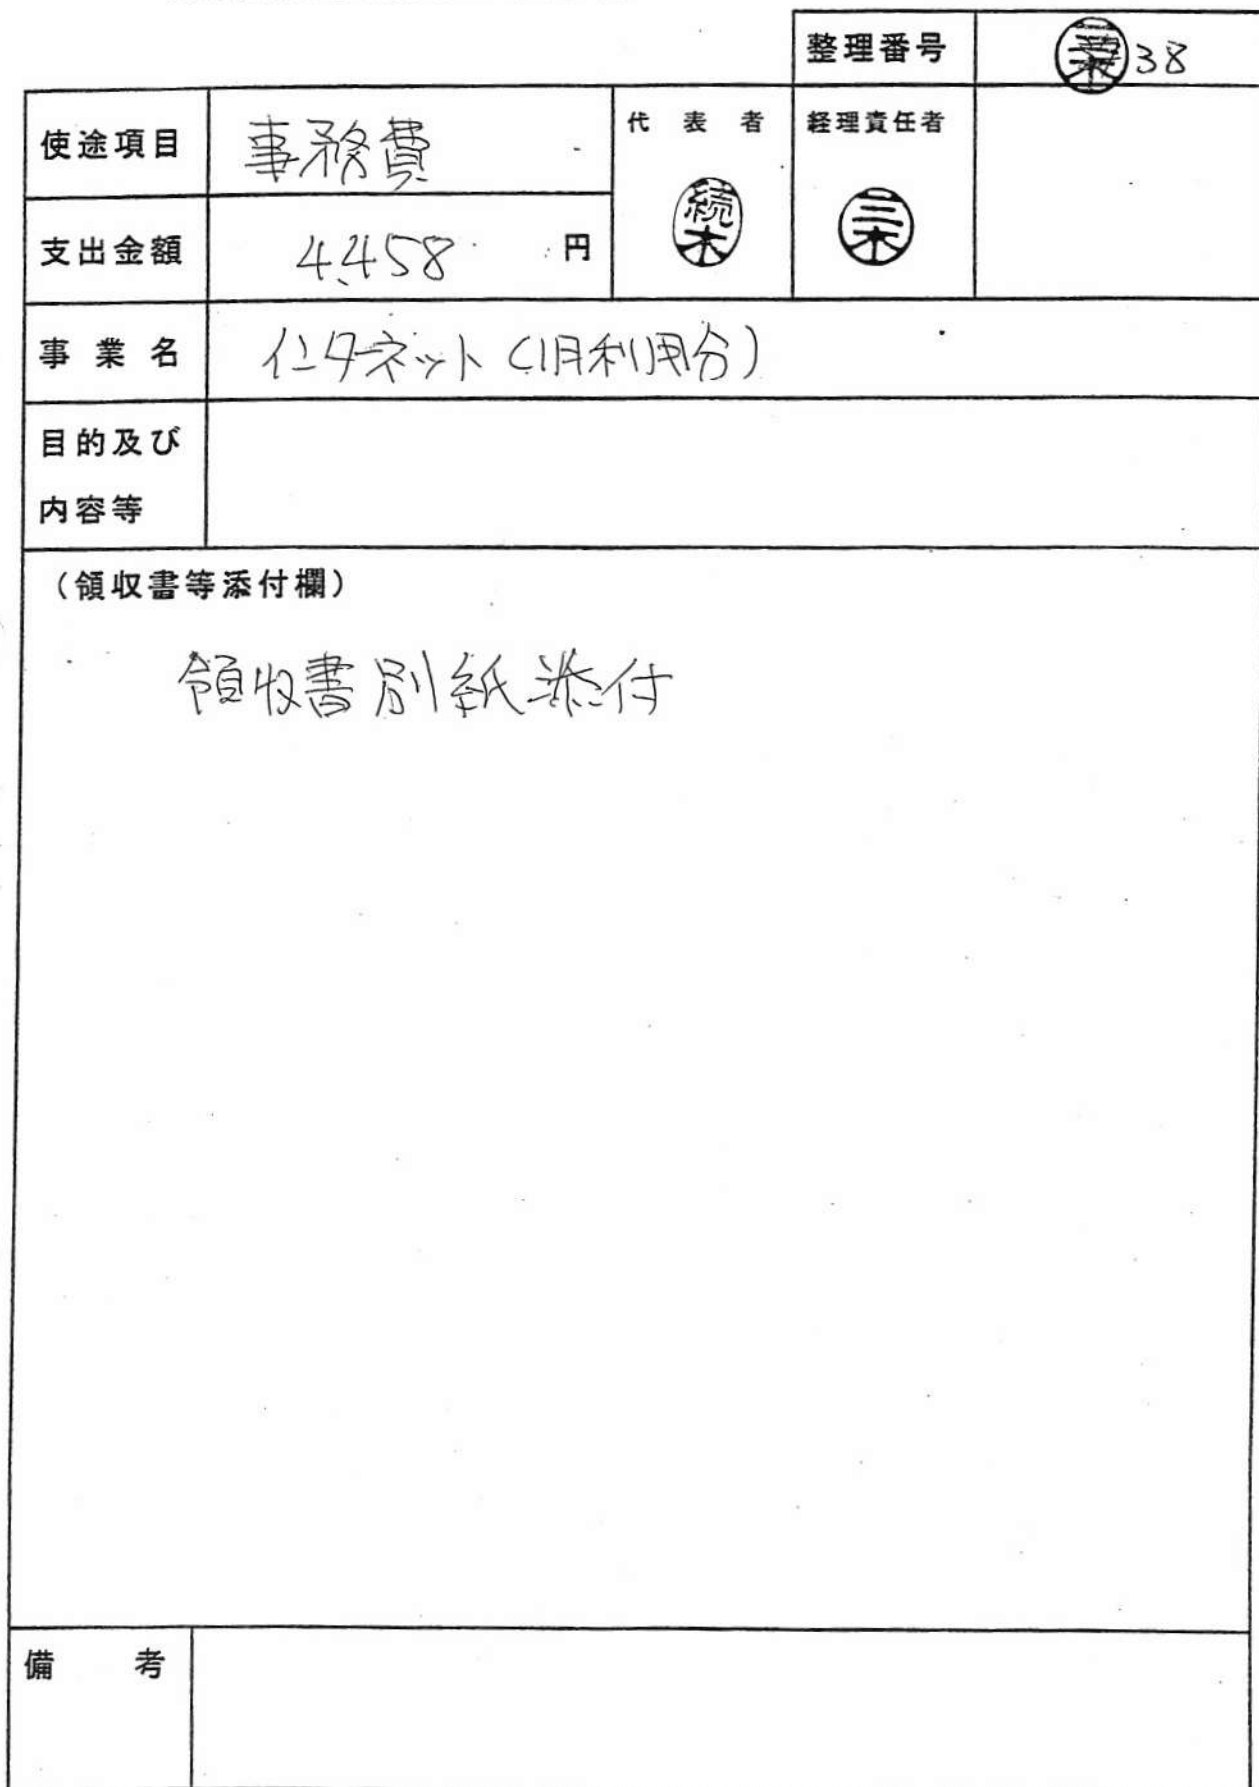 整理番号 38
使途項目 事務費 代表者 経理責任者
支出金額 4,458 円 続木 三木
事業名 インターネット(1月利用分)
目的及び
内容等
(領収書等添付欄)
領収書別紙添付
備考